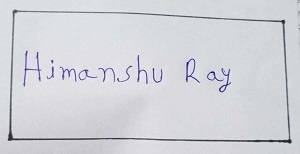 Himanshu Ray